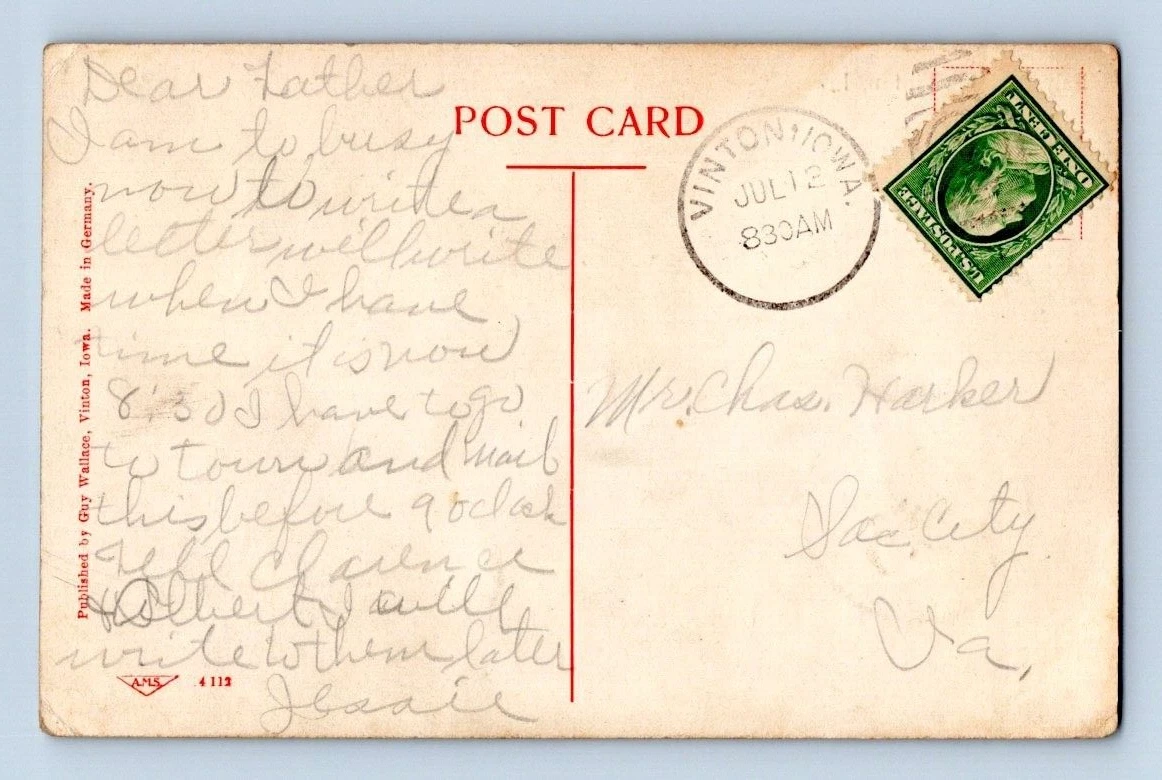 Dear Father
I am to busy
now to write a
letter will write
when I have
time it is now
8:30 I have to go
to town and mail
this before 9 oclock
Tell Clarence
& Albert I will
write to them later
Jessie
POST CARD
VINTON, IOWA.
JUL 12
830AM
U.S. POSTAGE
ONE CENT
Mr. Chas. Harker
Sac City
Ia.
Published by Guy Wallace, Vinton, Iowa. Made in Germany.
A.M.S. 4112